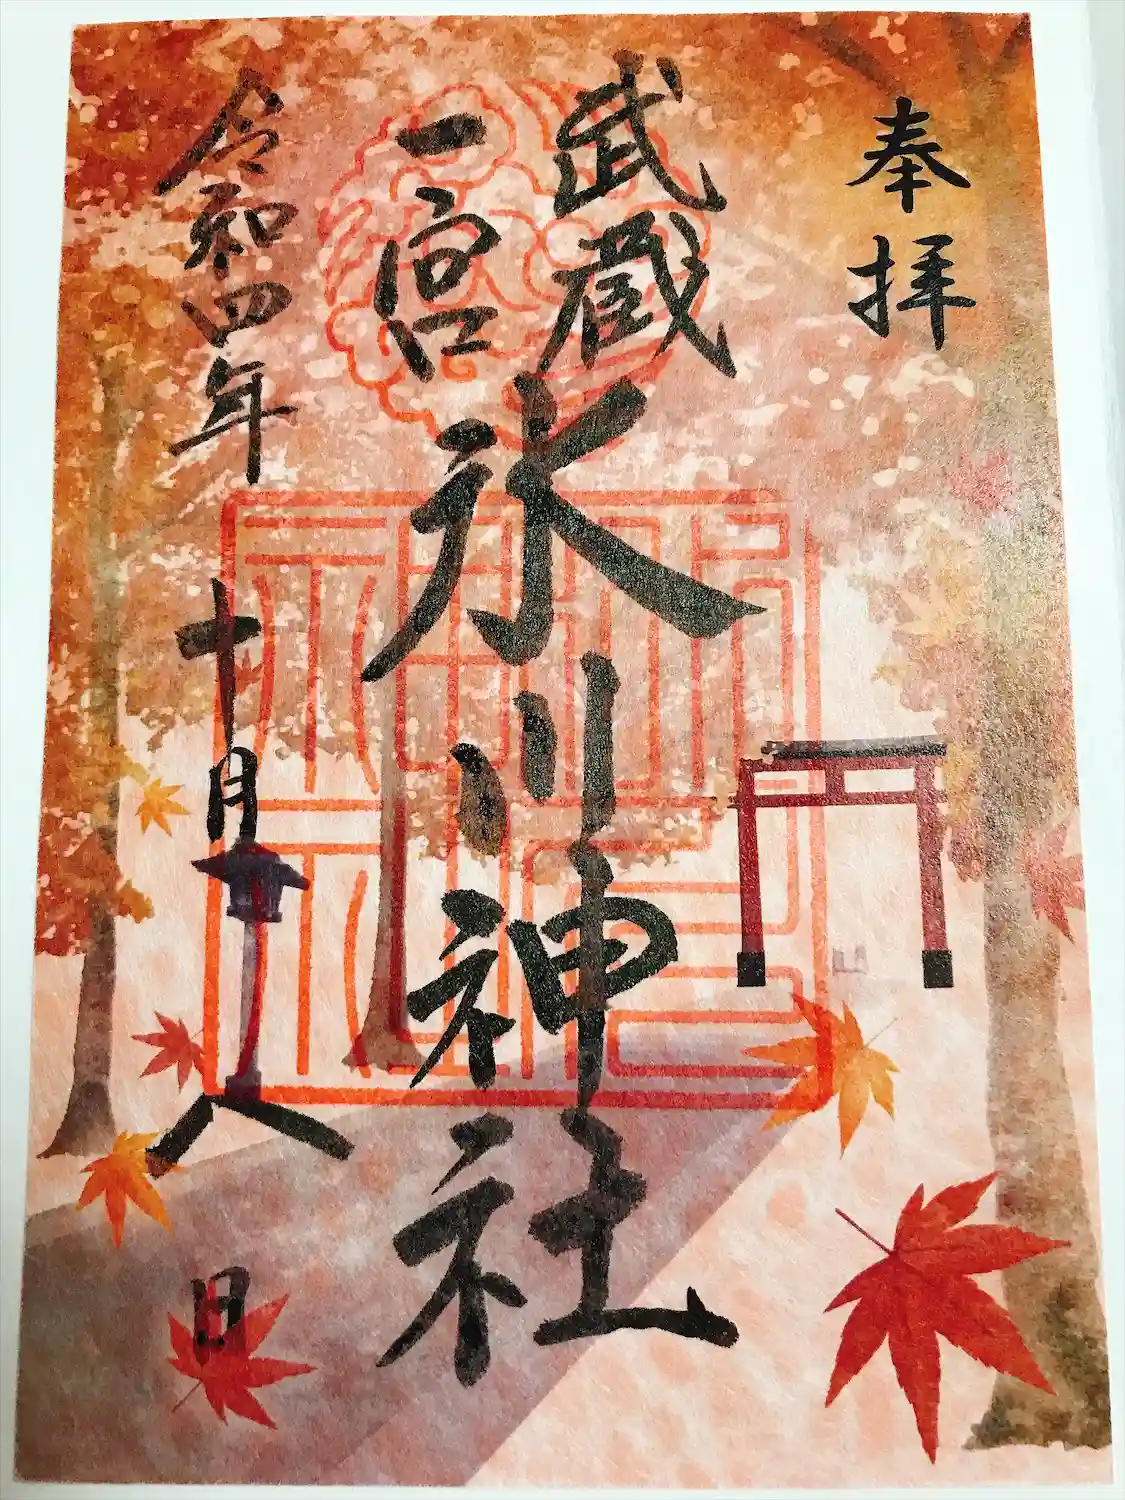 奉拝
武蔵
一宮
氷川神社
令和四年
十月八日